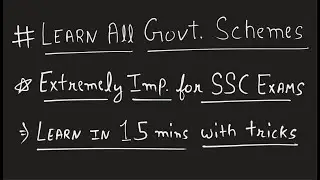 # LEARN All Govt. Schemes
※ Extremely Imp. for SSC Exams
⇒ LEARN IN 15 mins with tricks